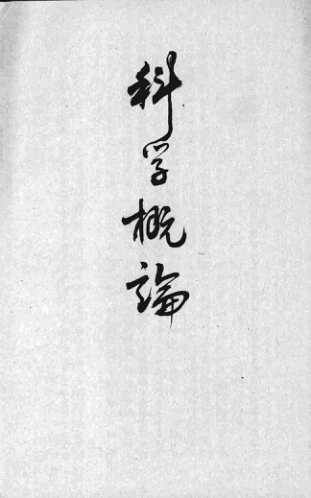 科学概論